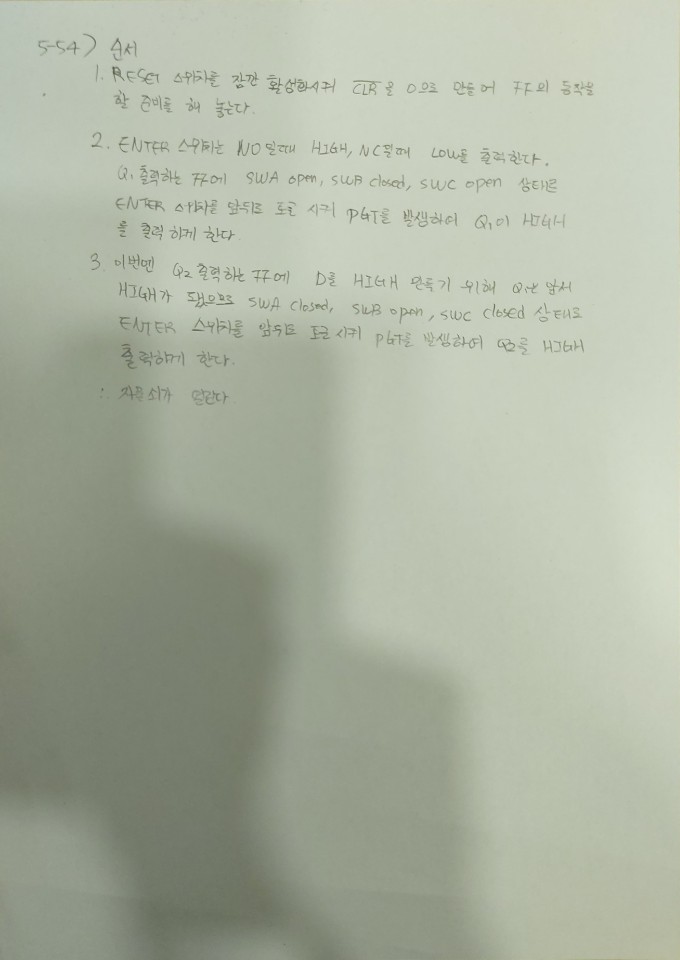 5-54) 순서
1. RESET 스위치를 잠깐 활성화시켜 C̅L̅R̅을 0으로 만들어 FF의 동작을
할 준비를 해 놓는다.
2. ENTER 스위치는 NO일때 HIGH, NC일때 LOW를 출력한다.
Q₁ 출력하는 FF에 SWA open, SWB closed, SWC open 상태로
ENTER 스위치를 앞뒤로 토글 시켜 PGT를 발생하여 Q₁이 HIGH
를 출력 하게 한다.
3. 이번엔 Q₂ 출력하는 FF에 D를 HIGH 만들기 위해 Q₁은 앞서
HIGH가 됐으므로 SWA closed, SWB open, SWC closed 상태로
ENTER 스위치를 앞뒤로 토글 시켜 PGT를 발생하여 Q2를 HIGH
출력하게 한다.
∴ 자물쇠가 열린다